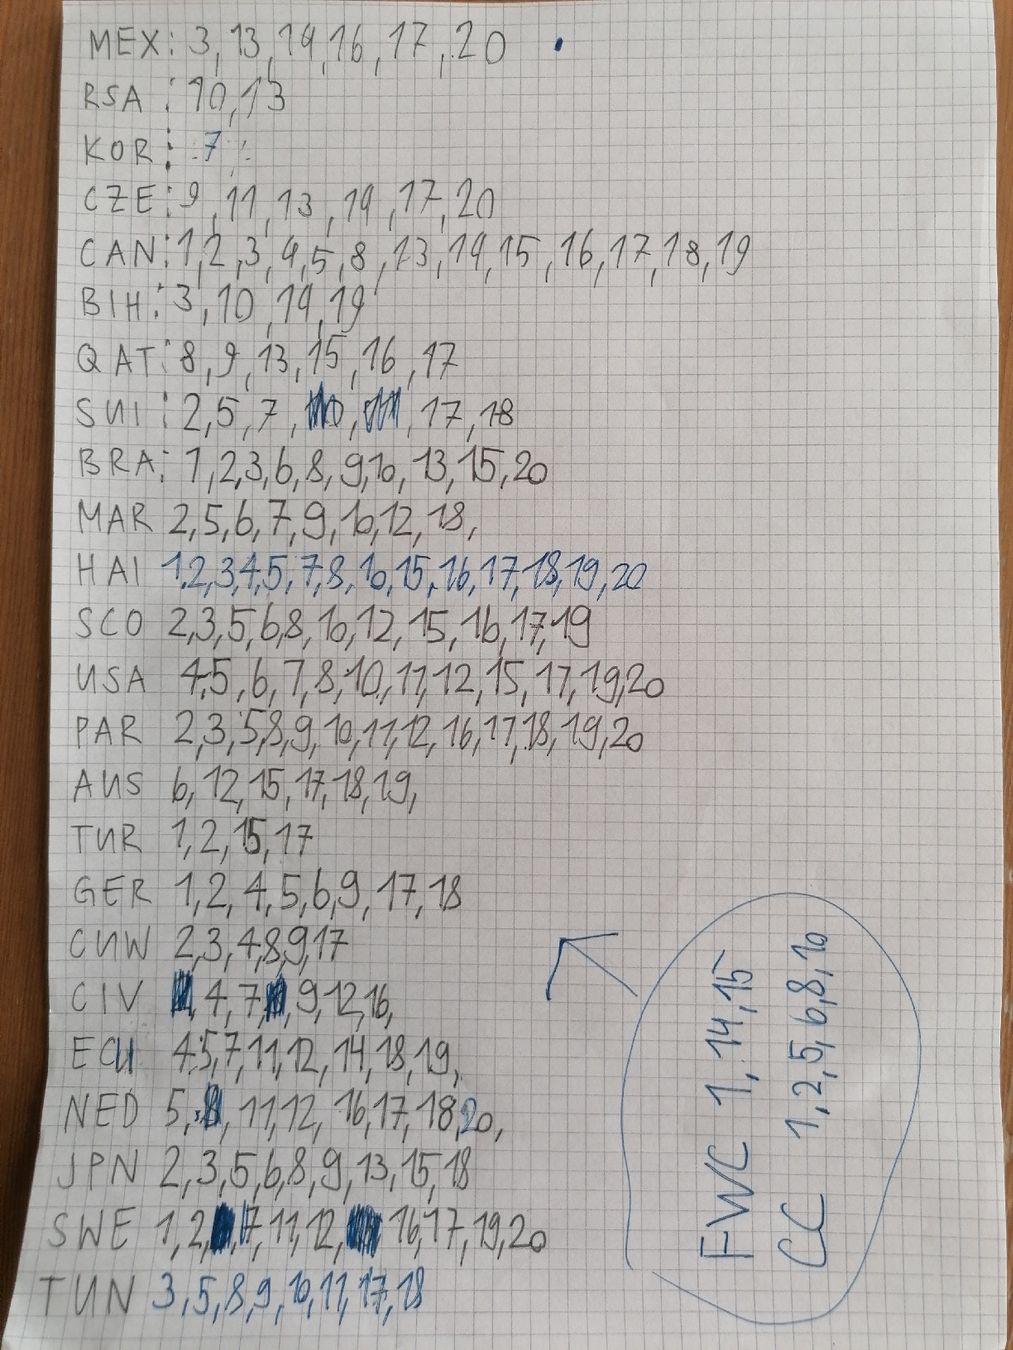 MEX: 3, 13, 14, 16, 17, 20
RSA : 10, 13
KOR: 7
CZE: 9, 11, 13, 14, 17, 20
CAN: 1, 2, 3, 4, 5, 8, 13, 14, 15, 16, 17, 18, 19
BIH: 3, 10, 14, 19
QAT: 8, 9, 13, 15, 16, 17
SUI: 2, 5, 7, 17, 18
BRA: 1, 2, 3, 6, 8, 9, 10, 13, 15, 20
MAR 2, 5, 6, 7, 9, 10, 12, 18,
HAI 1, 2, 3, 4, 5, 7, 8, 10, 15, 16, 17, 18, 19, 20
SCO 2, 3, 5, 6, 8, 10, 12, 15, 16, 17, 19
USA 4, 5, 6, 7, 8, 10, 11, 12, 15, 17, 19, 20
PAR 2, 3, 5, 8, 9, 10, 11, 12, 16, 17, 18, 19, 20
AUS 6, 12, 15, 17, 18, 19,
TUR 1, 2, 15, 17
GER 1, 2, 4, 5, 6, 9, 17, 18
CUW 2, 3, 4, 8, 9, 17
CIV 4, 7, 9, 12, 16,
ECU 4, 5, 7, 11, 12, 14, 18, 19,
NED 5, 11, 12, 16, 17, 18, 20,
JPN 2, 3, 5, 6, 8, 9, 13, 15, 18
SWE 1, 2, 7, 11, 12, 16, 17, 19, 20
TUN 3, 5, 8, 9, 10, 11, 17, 18
FWC 1, 14, 15
CC 1, 2, 5, 6, 8, 10